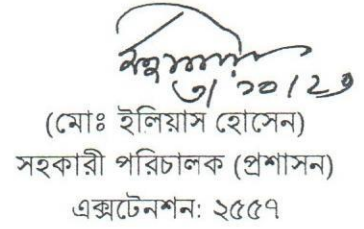 ৩/১০/২৩
(মোঃ ইলিয়াস হোসেন)
সহকারী পরিচালক (প্রশাসন)
এক্সটেনশন: ২৫৫৭